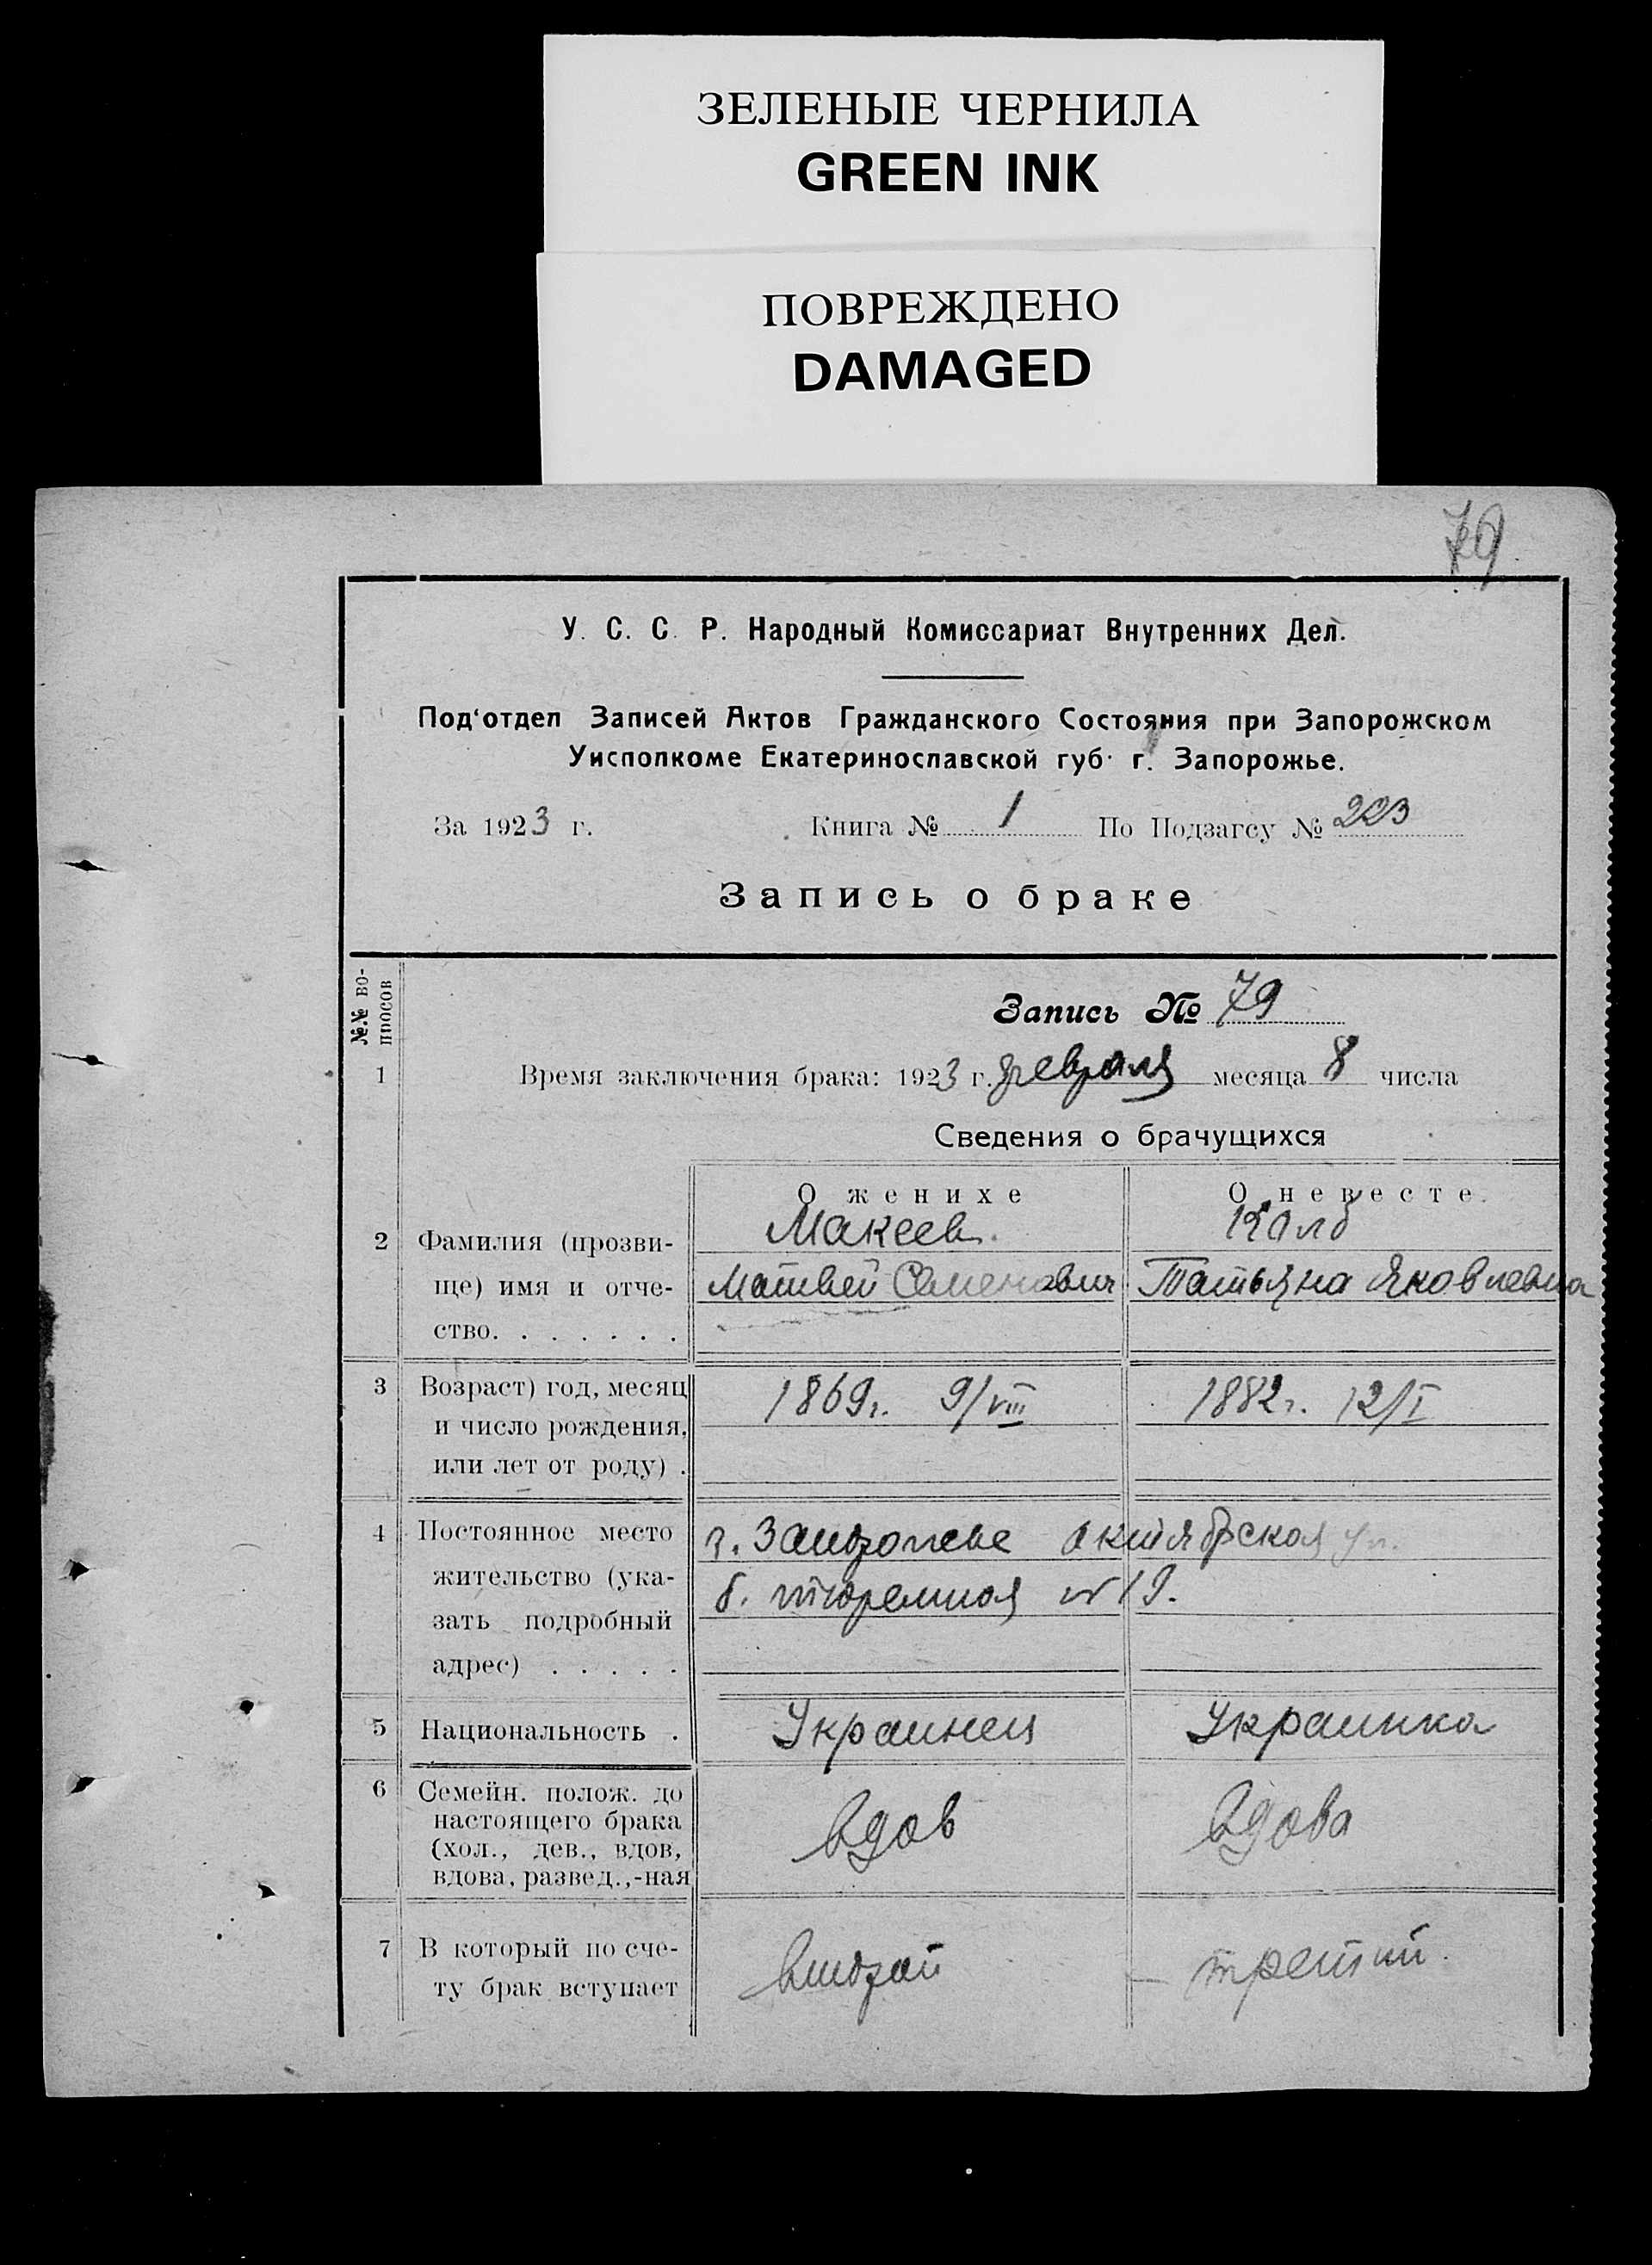 ЗЕЛЕНЫЕ ЧЕРНИЛА
GREEN INK
ПОВРЕЖДЕНО
DAMAGED
79
У. С. С. Р. Народный Комиссариат Внутренних Дел.
Под'отдел Записей Актов Гражданского Состояния при Запорожском
Уисполкоме Екатеринославской губ. г. Запорожье.
За 1923 г. Книга № 1 По Подзагсу № 223
Запись о браке
№№ во-
просов
Запись № 79
1 Время заключения брака: 1923 г. февраля месяца 8 числа
Сведения о брачущихся
О женихе О невесте.
2 Фамилия (прозви- Макеев. Калб
ще) имя и отче- Матвей Семенович Татьяна Яковлевна
ство. . . . . . .
3 Возраст) год, месяц 1869г. 9/VIII 1882г. 12/I
и число рождения,
или лет от роду) .
4 Постоянное место г. Запорожье октябрская ул.
жительство (ука- б. тюремная № 19.
зать подробный
адрес) . . . . .
5 Национальность . Украинец Украинка
6 Семейн. полож. до
настоящего брака вдов вдова
(хол., дев., вдов,
вдова, развед.,-ная
7 В который по сче- второй — третий.
ту брак вступает